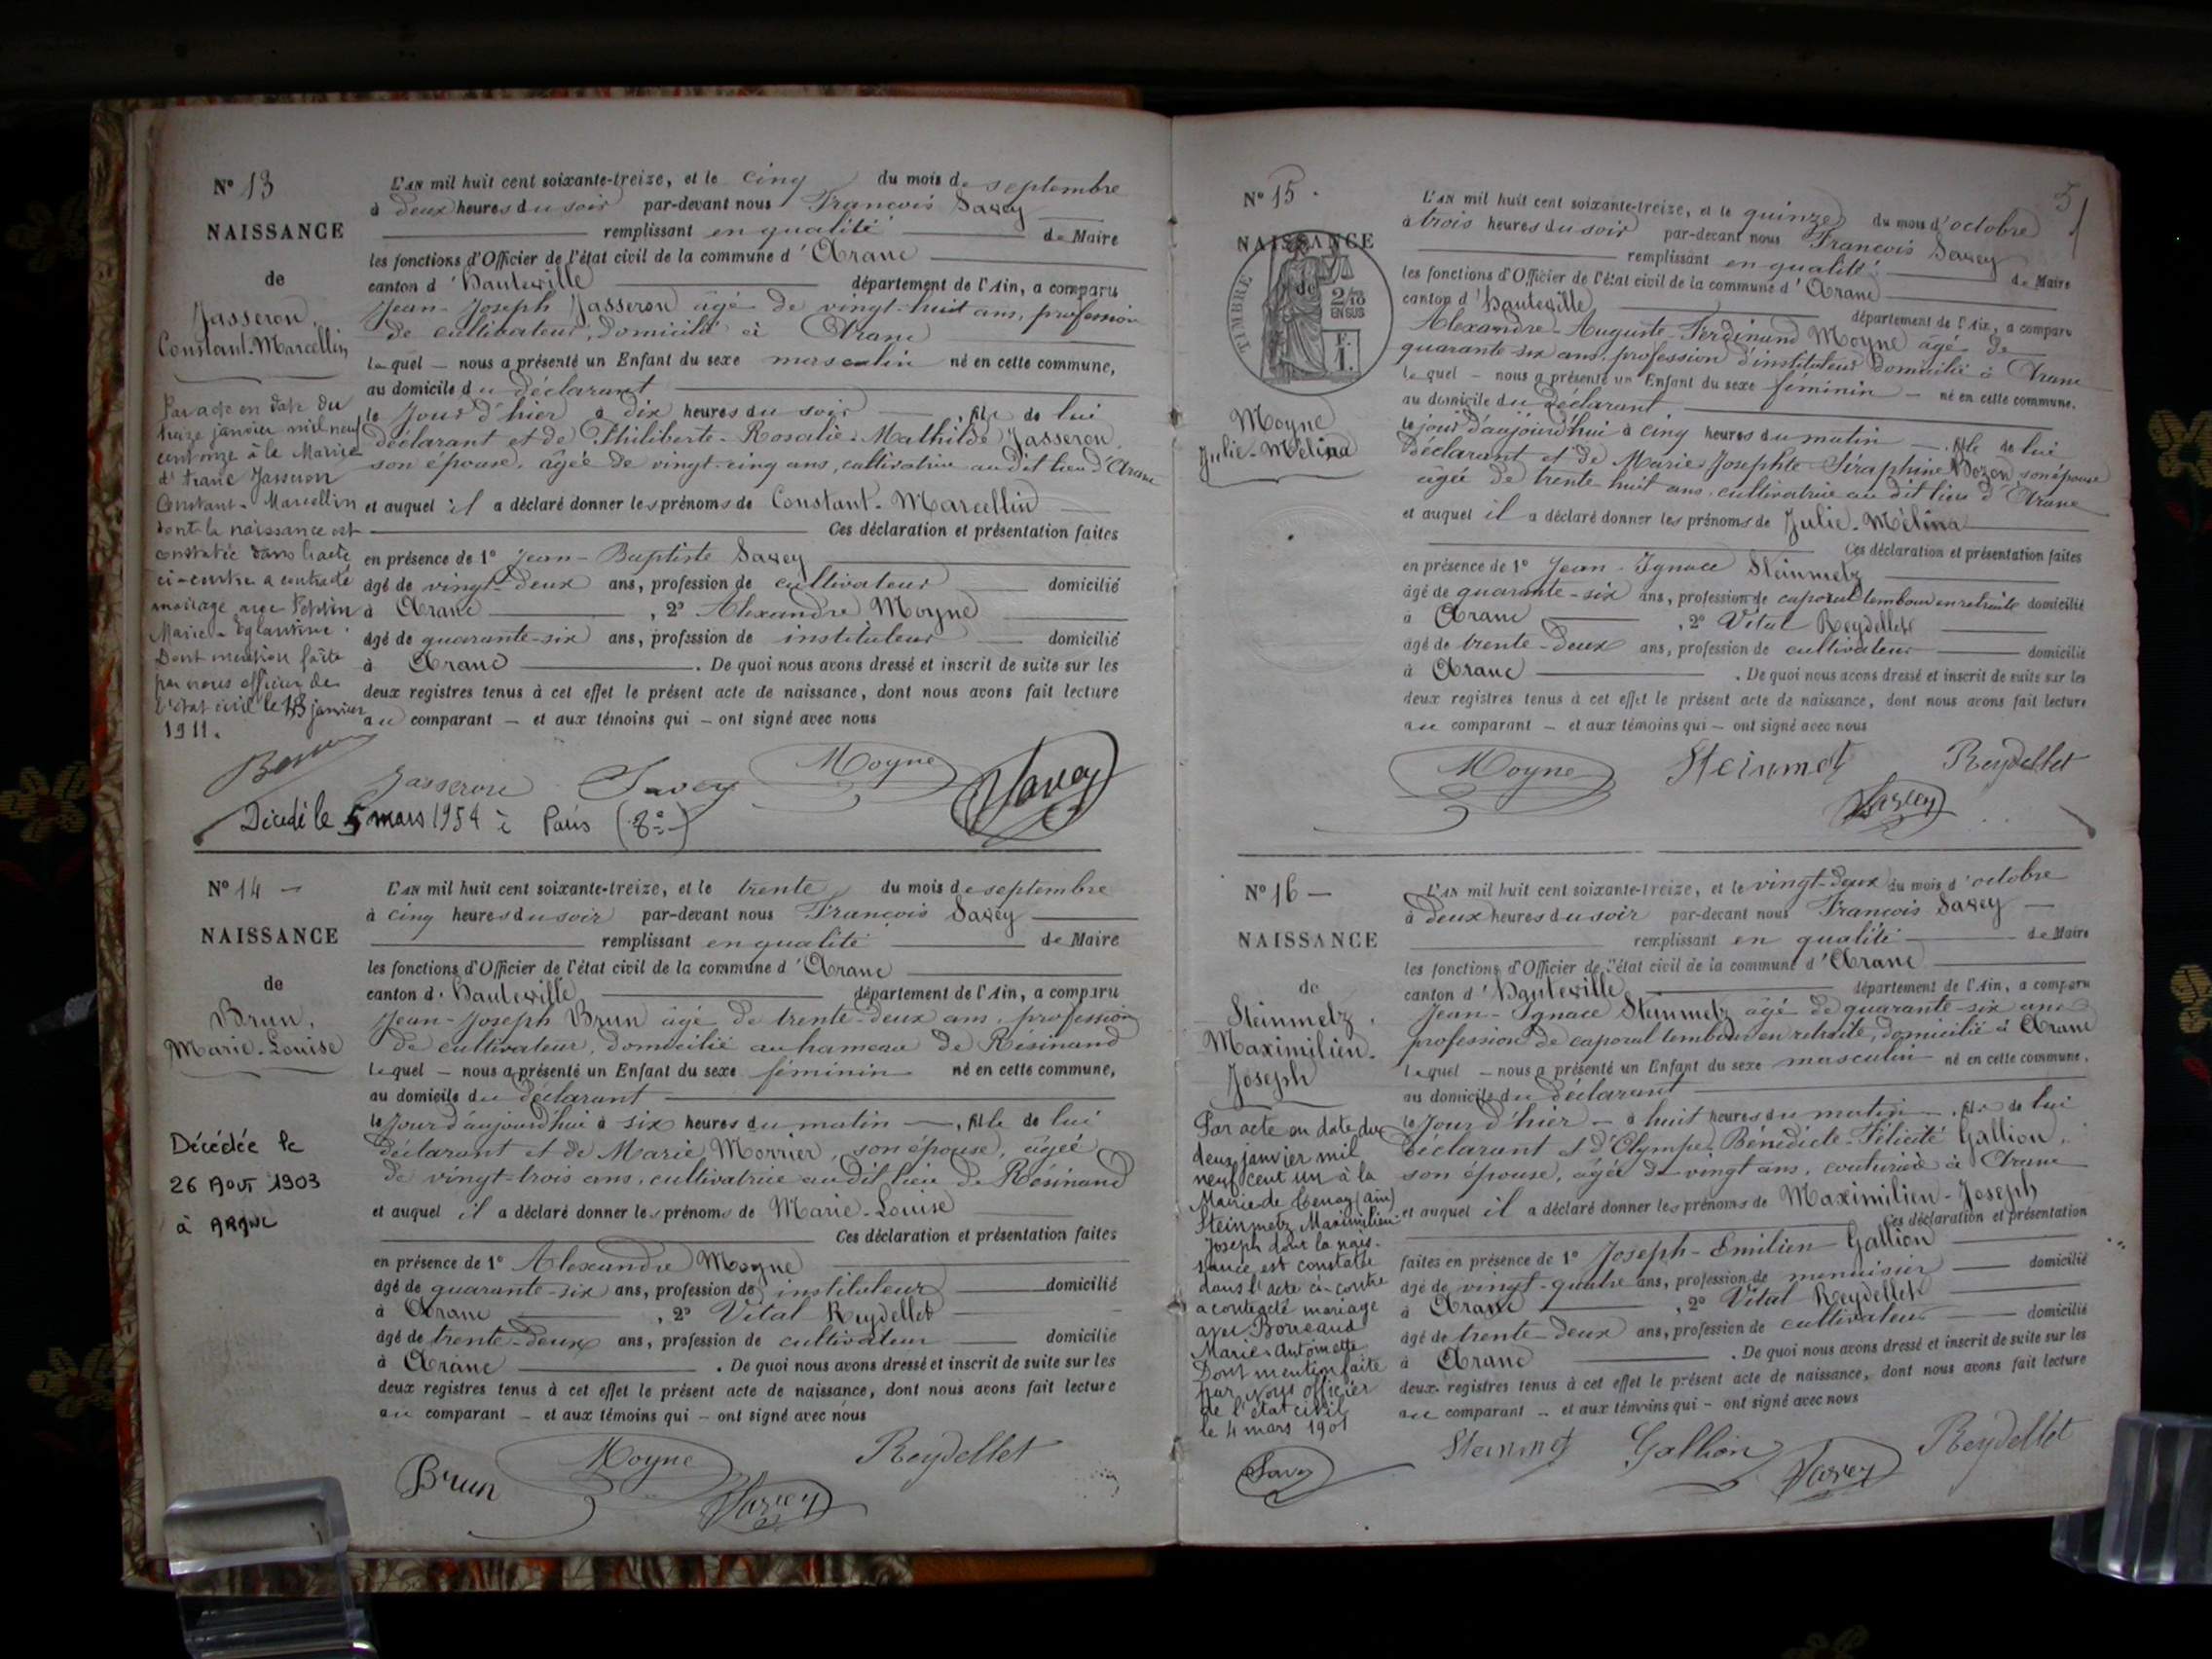 N° 13
NAISSANCE
de
Jasseron,
Constant-Marcellin
Par acte en date du
treize janvier mil neuf
cent onze à la Mairie
d'Aranc Jasseron
Constant-Marcellin
dont la naissance est
constatée dans l'acte
ci-contre a contracté
mariage avec
Marie-Eglantine.
Dont mention faite
par nous officier de
l'état civil le janvier
1911.
L'AN mil huit cent soixante-treize, et le cinq du mois de septembre
à deux heures du soir par-devant nous François Savey
remplissant en qualité de Maire
les fonctions d'Officier de l'état civil de la commune d'Aranc
canton d'Hauteville département de l'Ain, a comparu
Jean-Joseph Jasseron âgé de vingt-huit ans, profession
de cultivateur, domicilié à Aranc
lequel — nous a présenté un Enfant du sexe masculin né en cette commune,
au domicile du déclarant
le jour d'hier à dix heures du soir, fils de lui
déclarant et de Philiberte-Rosalie-Mathilde Jasseron,
son épouse, âgée de vingt-cinq ans, cultivatrice au dit lieu d'Aranc
et auquel il a déclaré donner les prénoms de Constant-Marcellin
Ces déclaration et présentation faites
en présence de 1° Jean-Baptiste Savey
âgé de vingt-deux ans, profession de cultivateur domicilié
à Aranc, 2° Alexandre Moyne
âgé de quarante-six ans, profession de instituteur domicilié
à Aranc. De quoi nous avons dressé et inscrit de suite sur les
deux registres tenus à cet effet le présent acte de naissance, dont nous avons fait lecture
au comparant — et aux témoins qui — ont signé avec nous
Jasseron Savey Moyne Savey
Décédé le 5 mars 1954 à Paris (8e)
N° 14 —
NAISSANCE
de
Brun,
Marie-Louise
Décédée le
26 Aout 1903
à Aranc
L'AN mil huit cent soixante-treize, et le trente du mois de septembre
à cinq heures du soir par-devant nous François Savey
remplissant en qualité de Maire
les fonctions d'Officier de l'état civil de la commune d'Aranc
canton d'Hauteville département de l'Ain, a comparu
Jean-Joseph Brun âgé de trente-deux ans, profession
de cultivateur, domicilié au hameau de Résinand
lequel — nous a présenté un Enfant du sexe féminin né en cette commune,
au domicile du déclarant
le jour d'aujourd'hui à six heures du matin —, fille de lui
déclarant et de Marie Morrier, son épouse, âgée
de vingt-trois ans, cultivatrice au dit lieu de Résinand
et auquel il a déclaré donner les prénoms de Marie-Louise
Ces déclaration et présentation faites
en présence de 1° Alexandre Moyne
âgé de quarante-six ans, profession de instituteur domicilié
à Aranc, 2° Vital Reydellet
âgé de trente-deux ans, profession de cultivateur domicilié
à Aranc. De quoi nous avons dressé et inscrit de suite sur les
deux registres tenus à cet effet le présent acte de naissance, dont nous avons fait lecture
au comparant — et aux témoins qui — ont signé avec nous
Brun Moyne Savey Reydellet
N° 15.
NAISSANCE
de
TIMBRE
2/10
EN SUS
F.
1.
Moyne
Julie-Mélina
5
L'AN mil huit cent soixante-treize, et le quinze du mois d'octobre
à trois heures du soir par-devant nous François Savey
remplissant en qualité de Maire
les fonctions d'Officier de l'état civil de la commune d'Aranc
canton d'Hauteville département de l'Ain, a comparu
Alexandre-Auguste-Ferdinand Moyne âgé de
quarante-six ans, profession d'instituteur domicilié à Aranc
lequel — nous a présenté un Enfant du sexe féminin — né en cette commune,
au domicile du déclarant
le jour d'aujourd'hui à cinq heures du matin —, fille de lui
déclarant et de Marie-Josephte-Séraphine Bozon son épouse
âgée de trente huit ans, cultivatrice au dit lieu d'Aranc
et auquel il a déclaré donner les prénoms de Julie-Mélina
Ces déclaration et présentation faites
en présence de 1° Jean-Ignace Steinmetz
âgé de quarante-six ans, profession de caporal tambour en retraite domicilié
à Aranc, 2° Vital Reydellet
âgé de trente-deux ans, profession de cultivateur domicilié
à Aranc. De quoi nous avons dressé et inscrit de suite sur les
deux registres tenus à cet effet le présent acte de naissance, dont nous avons fait lecture
au comparant — et aux témoins qui — ont signé avec nous
Moyne Steinmetz Savey Reydellet
N° 16 —
NAISSANCE
de
Steinmetz,
Maximilien-
Joseph
Par acte en date du
deux janvier mil
neuf cent un à la
Mairie de Tenay (ain)
Steinmetz Maximilien-
Joseph dont la nais-
sance est constatée
dans l'acte ci-contre
a contracté mariage
avec Borceaud
Marie-Antoinette
Dont mention faite
par Nous officier
de l'état civil
le 4 mars 1901
Savey
L'AN mil huit cent soixante-treize, et le vingt-deux du mois d'octobre
à deux heures du soir par-devant nous François Savey —
remplissant en qualité de Maire
les fonctions d'Officier de l'état civil de la commune d'Aranc
canton d'Hauteville département de l'Ain, a comparu
Jean-Ignace Steinmetz âgé de quarante-six ans
profession de caporal tambour en retraite, domicilié à Aranc
lequel — nous a présenté un Enfant du sexe masculin né en cette commune,
au domicile du déclarant
le jour d'hier — à huit heures du matin —, fils de lui
déclarant et d'Olympe-Bénédicte-Félicité Gallion,
son épouse, âgée de vingt ans, couturière à Aranc
et auquel il a déclaré donner les prénoms de Maximilien-Joseph
Ces déclaration et présentation
faites en présence de 1° Joseph-Emilien Gallion
âgé de vingt-quatre ans, profession de menuisier domicilié
à Aranc, 2° Vital Reydellet
âgé de trente-deux ans, profession de cultivateur domicilié
à Aranc. De quoi nous avons dressé et inscrit de suite sur les
deux registres tenus à cet effet le présent acte de naissance, dont nous avons fait lecture
au comparant — et aux témoins qui — ont signé avec nous
Steinmetz Gallion Savey Reydellet